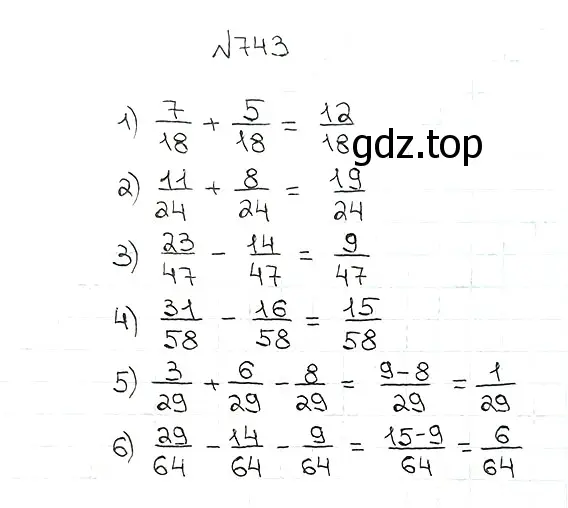 №743
1) 7/18 + 5/18 = 12/18
gdz.top
2) 11/24 + 8/24 = 19/24
3) 23/47 - 14/47 = 9/47
4) 31/58 - 16/58 = 15/58
5) 3/29 + 6/29 - 8/29 = 9-8/29 = 1/29
6) 29/64 - 14/64 - 9/64 = 15-9/64 = 6/64